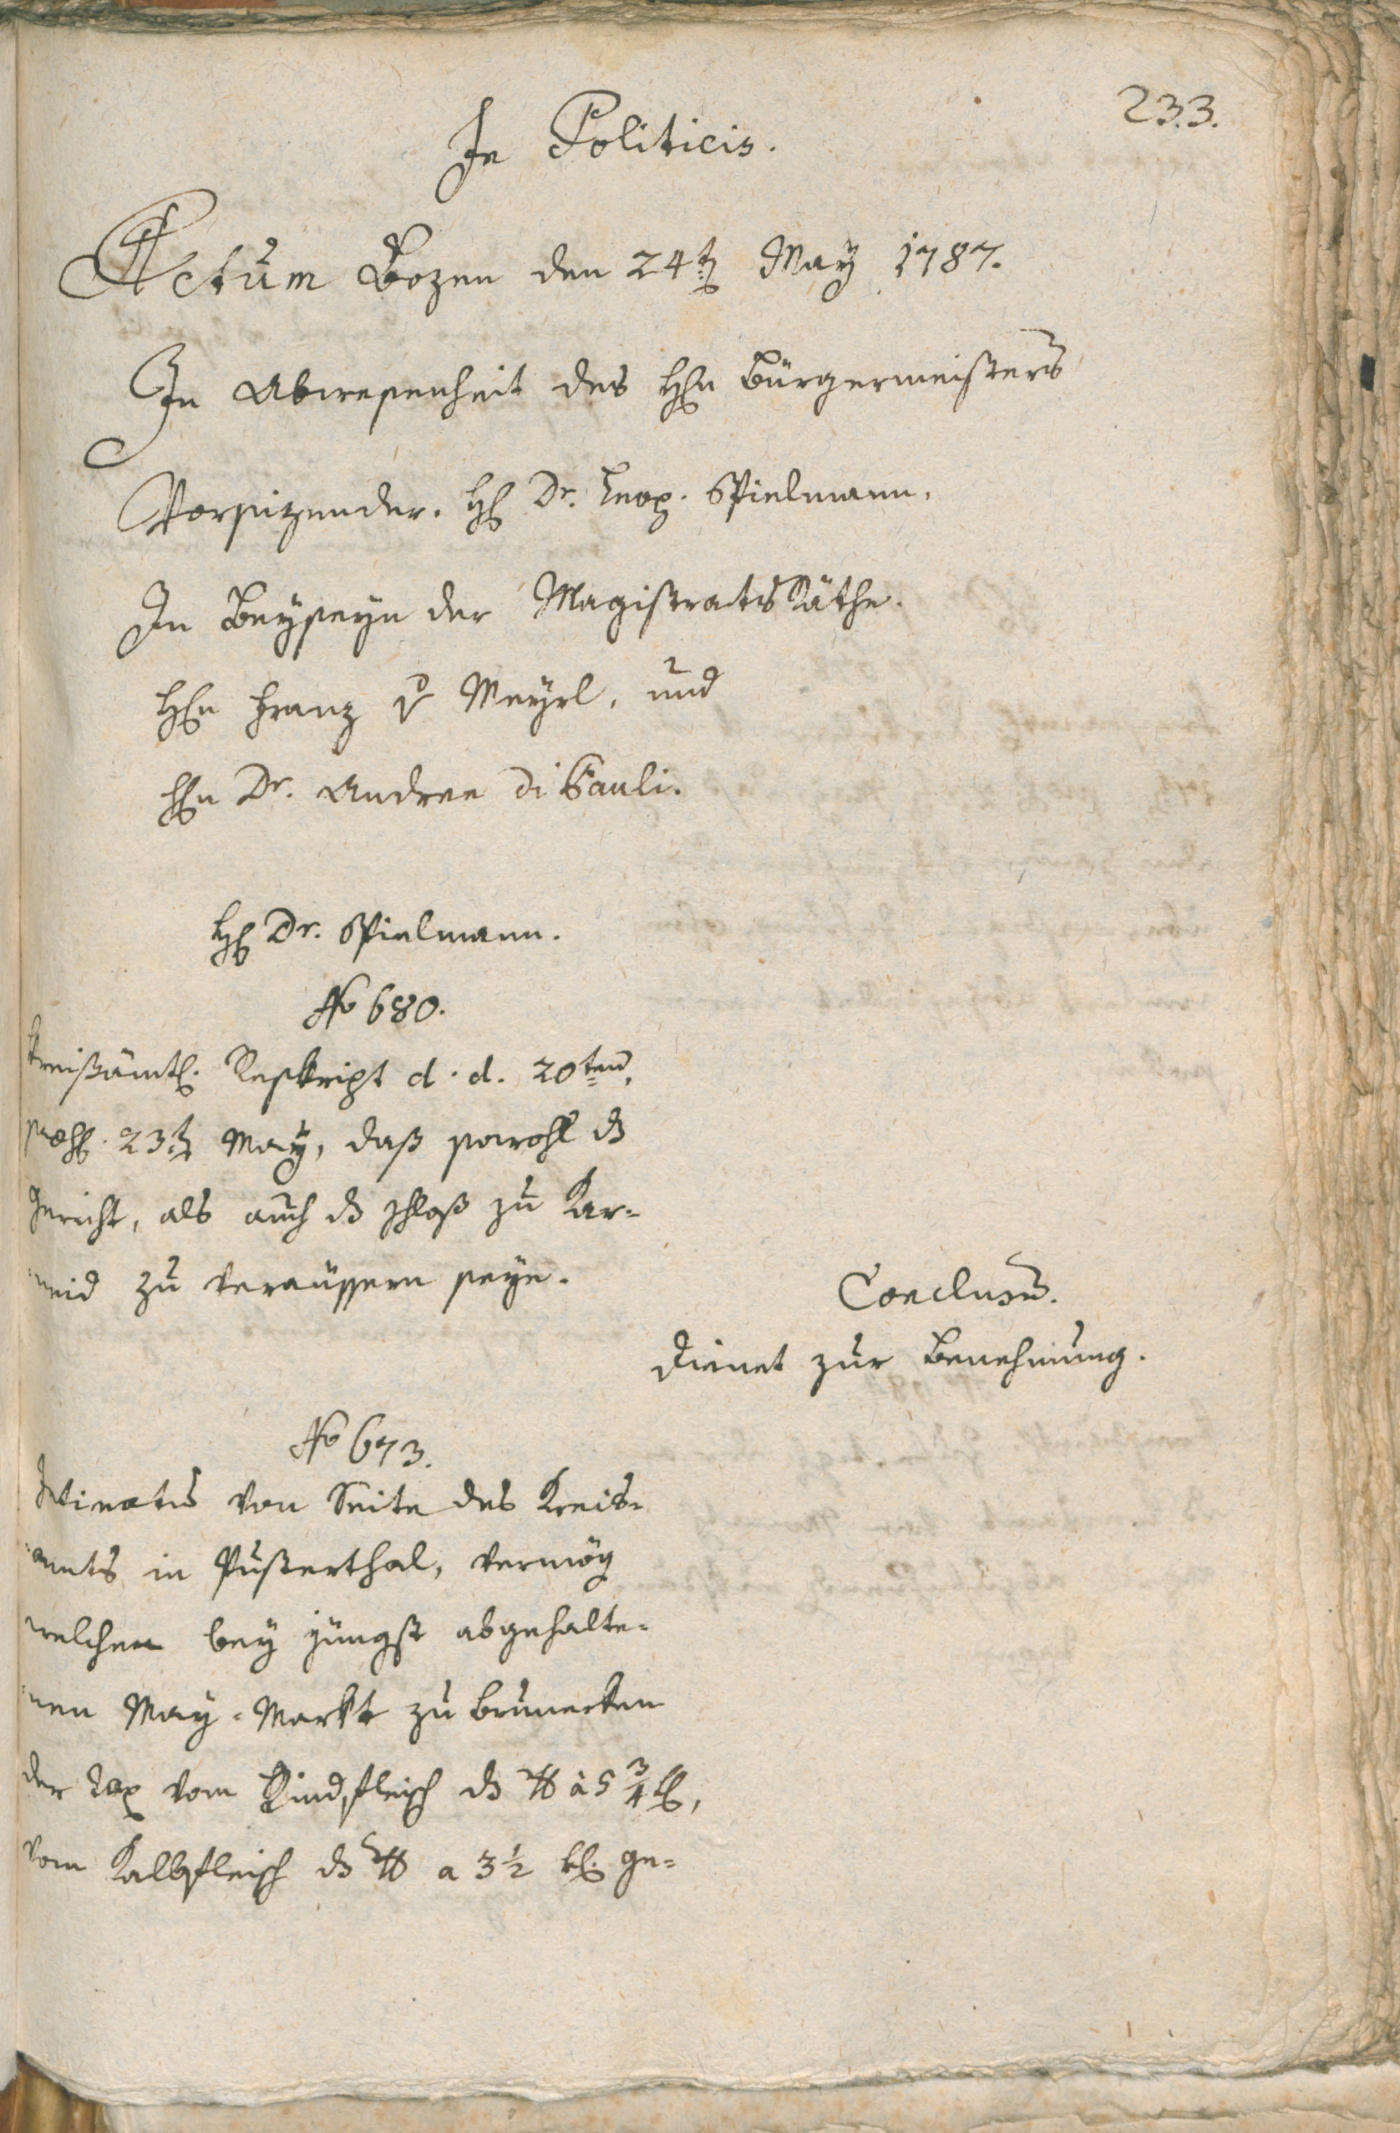 233.
In Politicis.
Actum Bozen den 24t: May 1787.
In Abwesenheit des Hn Bürgermeisters
Vorsitzender. H Dr. Leop. Spielmann.
In Beyseyn der Magistrats Räthe.
Hn Franz v Meyrl, und
Hn Dr. Andree Di Pauli.
H Dr. Spielmann.
No 680.
Kreißämtl. Reskript d. d. 20ten,
23t: May, daß sowohl ds
Gericht, als auch ds Schloß zu Kar-
neid zu veräussern seye.
Conclusum.
Dienet zur Benehmung.
No 673.
von Seite des Kreis-
amts in Pusterthal, vermög
welchen bey jüngst abgehalte-
nen May-Markt zu Brunecken
der Tax vom Rindfleisch ds ℔ à 5 3/4 kr,
vom Kalbfleisch ds ℔ a 3 1/2 kr. ge-